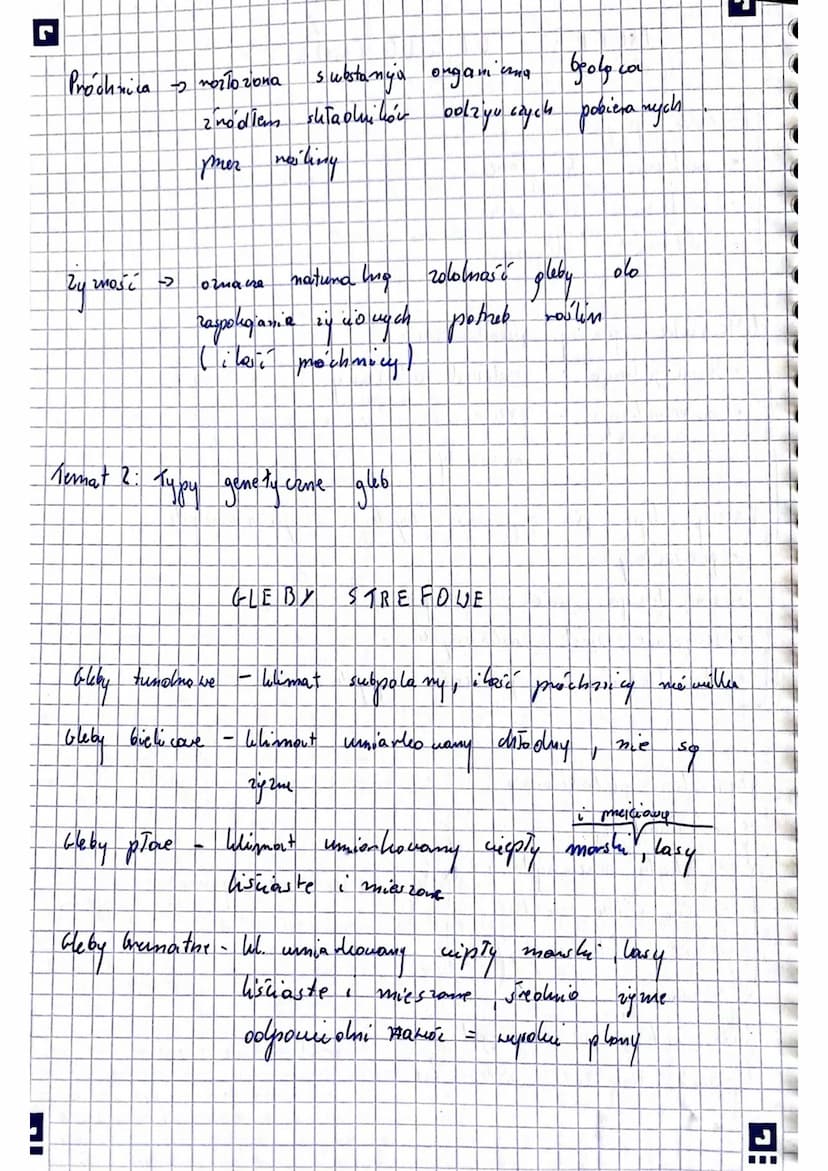 Próchnica → rozłożona substancja organiczna będąca
źródłem składników odżywczych pobieranych.
przez rośliny
Żyzność → oznacza naturalną zdolność gleby do
zaspokajania życiowych potrzeb roślin
(ilość próchnicy)
Temat 2: Typy genetyczne gleb
GLEBY STREFOWE
Gleby tundrowe - klimat subpolarny, ilość próchnicy niewielka
Gleby bielicowe - klimat umiarkowany chłodny, nie są
żyzne
i przejściowy
Gleby płowe - klimat umiarkowany ciepły morski, lasy
liściaste i mieszane
Gleby brunatne - kl. umiarkowany ciepły morski, lasy
liściaste i mieszane, średnio żyzne
odpowiedni nawóz = wysokie plony